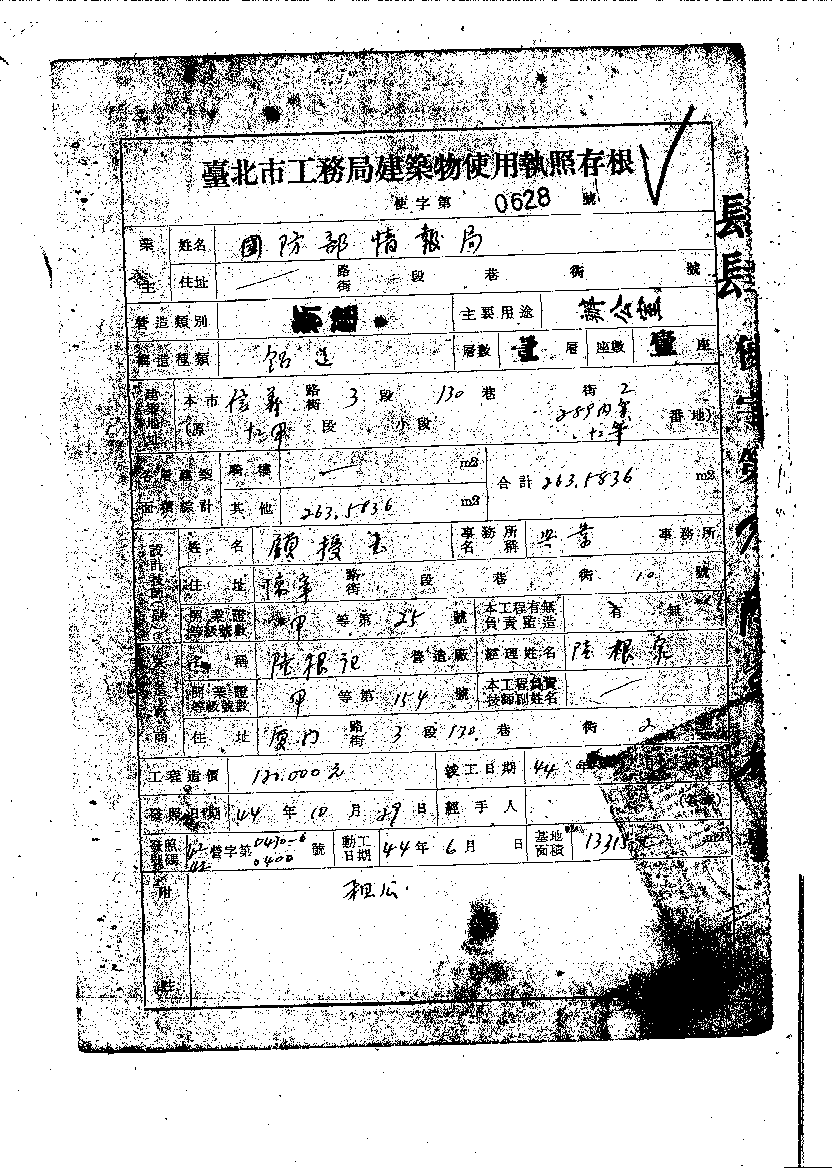 臺北市工務局建築物使用執照存根
使字第 0628 號
業主 姓名 國防部情報局
住址 路街 段 巷 衖 號
營造類別 新建 主要用途 辦公室
構造種類 層數 壹 層 座數 壹 座
建築地址 本市 信義 路街 3 段 130 巷 衖 2
(原 十二甲 段 小段 289內 番地)
各層建築面積總計 騎樓 m2 合計 263.5836 m2
其他 263.5836 m2
姓名 顧授書 事務所名稱 興業 事務所
住址 路街 段 巷 衖 10 號
開業證等級號數 甲 等第 25 號 本工程有無負責監造 有 無
名稱 陸根記 營造廠 經理姓名 陸根泉
開業證等級號數 甲 等第 154 號 本工程負責技師副姓名
住址 廈門 路街 3 段 170 巷 衖 2
工程造價 120.000元 竣工日期 44 年
發照日期 44 年 10 月 29 日 經手人
發照號碼 營字第 0430-6 0400 號 動工日期 44年 6月 日 基地面積 13315 m2
附註